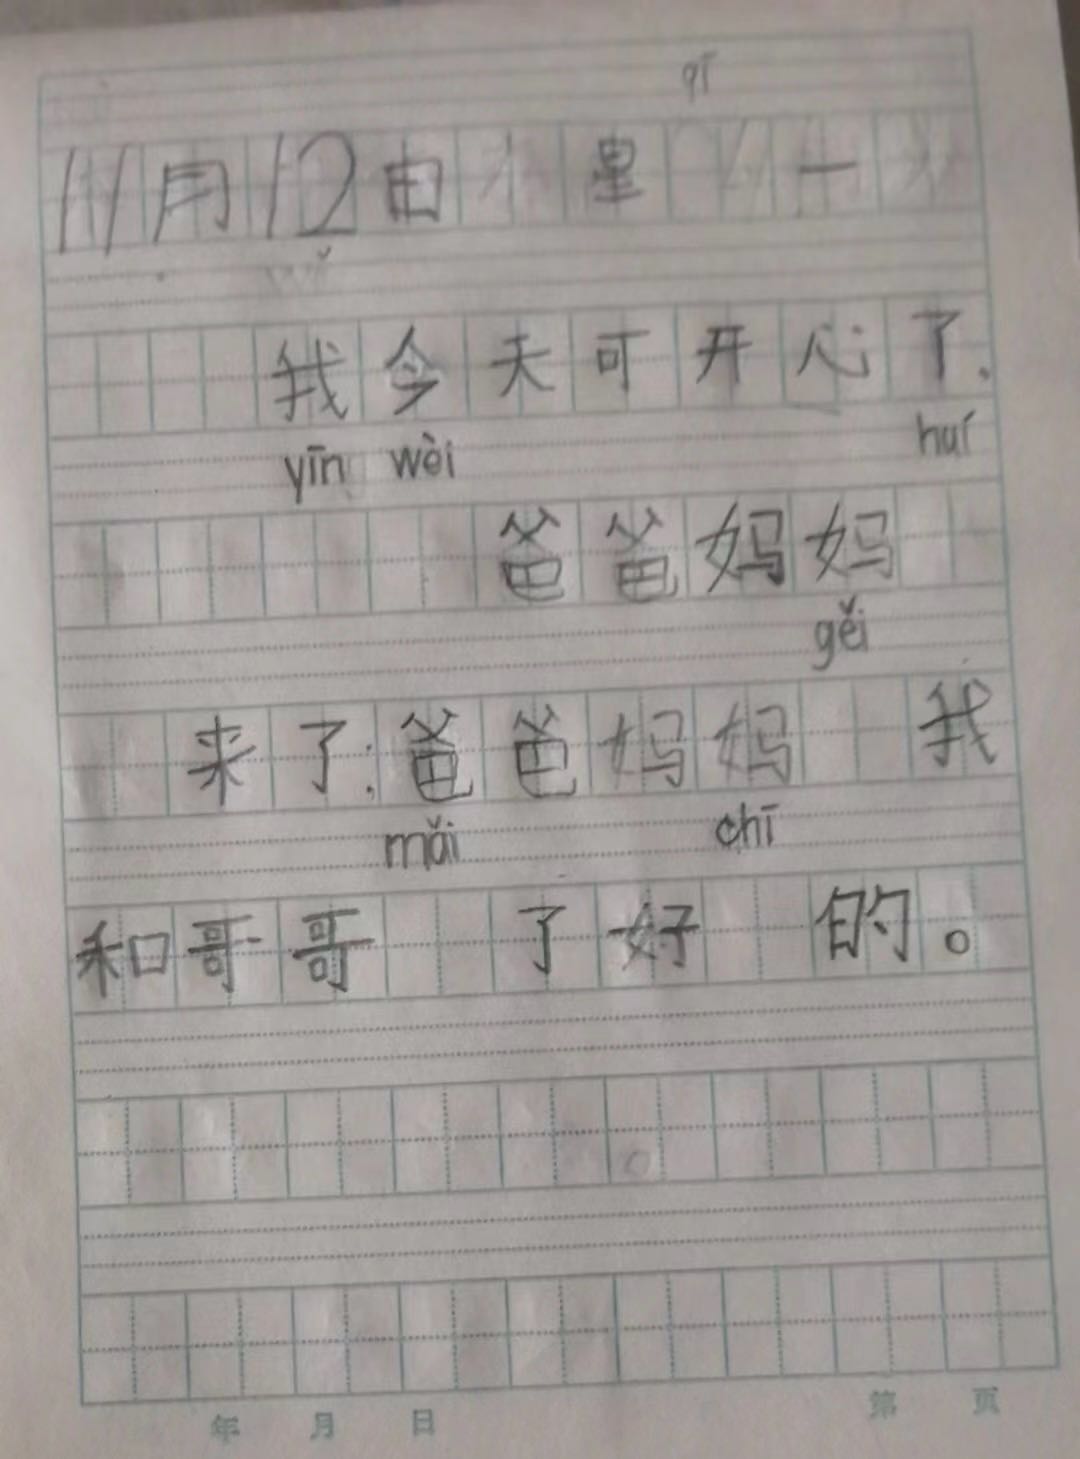 qī
11月12由 星 一
我今天可开心了.
yīn wèi huí
爸爸妈妈
gěi
来了;爸爸妈妈 我
mǎi chī
和哥哥 了好 的。
年 月 日 第 页